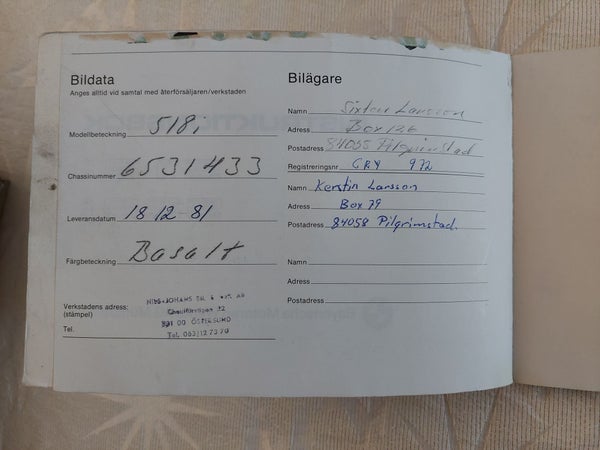 Bildata
Anges alltid vid samtal med återförsäljaren/verkstaden
Modellbeteckning 518i
Chassinummer 6531433
Leveransdatum 18 12-81
Färgbeteckning Basalt
Verkstadens adress:
(stämpel)
Tel.
NILS-JOHANS BIL & AB
12
831 00 ÖSTERSUND
Tel. 063/12 73 70
Bilägare
Namn Sixten Larsson
Adress Box 126
Postadress 84055 Pilgrimstad
Registreringsnr CRY 972
Namn Kerstin Larsson
Adress Box 79
Postadress 84058 Pilgrimstad.
Namn
Adress
Postadress